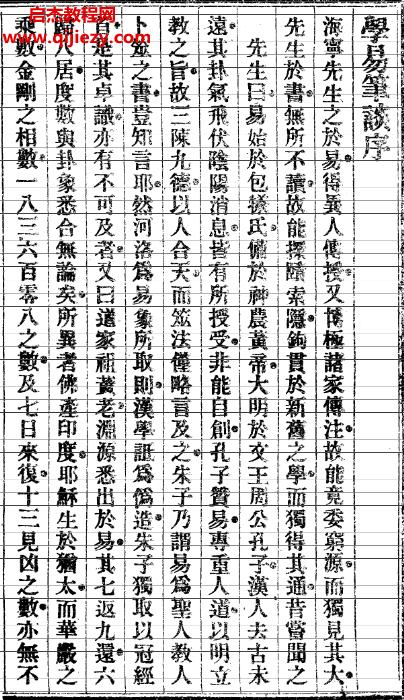 启杰教程网
www.qijiejiaocheng.com
學易筆談序
海寧先生之於易得異人傳授又博極諸家傳注故能竟委窮源而獨見其大
先生於書無所不讀故能探賾索隱鉤貫於新舊之學而獨得其通昔嘗聞之
先生曰易始於包犧氏備於神農黃帝大明於文王周公孔子漢人去古未
遠其卦氣飛伏陰陽消息皆有所授受非能自創孔子贊易專重人道以明立
教之旨故三陳九德以人合天而筮法僅略言及之朱子乃謂易為聖人教人
卜筮之書豈知言耶然河洛為易象所取則漢學詆為偽造朱子獨取以冠經
首是其卓識亦有不可及者又曰道家祖黃老淵源悉出於易其七返九還六
歸八居度數與卦象悉合無論矣所異者佛產印度耶穌生於猶太而華嚴之
乘數金剛之相數一八三六百零八之數及七日來復十三見凶之數亦無不